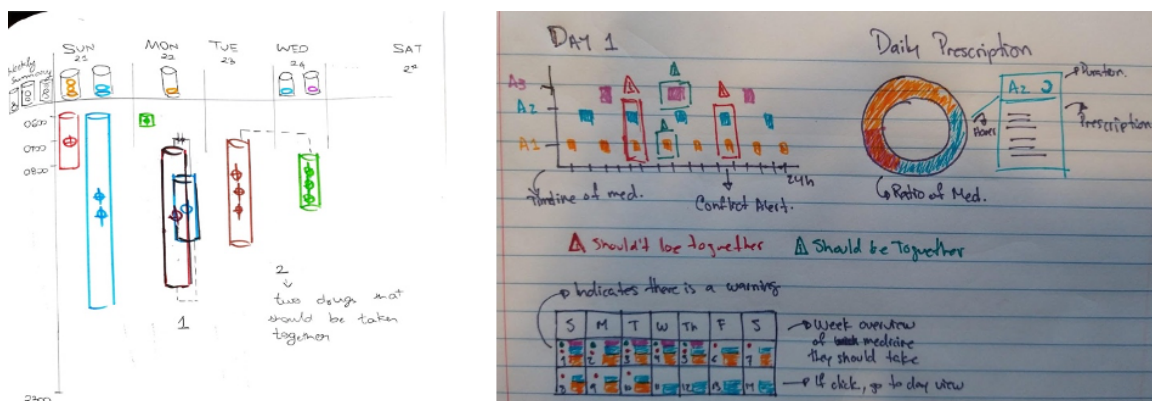 SUN
21
MON
22
TUE
23
WED
24
SAT
Weekly
Summary
0600
0700
0800
2300
1
2
two drugs that
should be taken
together
DAY 1
A3
A2
A1
24h
Timeline of med.
Conflict Alert.
Daily Prescription
A2
Duration
Prescription
Hover
Ratio of Med.
Should't be toguether
Should be Toguether
Indicates there is a warning
S M T W Th F S
1 2 3 4 5 6 7
8 9 10 11 12 13 14
Week overview
of medicine
they should take
If click, go to day view